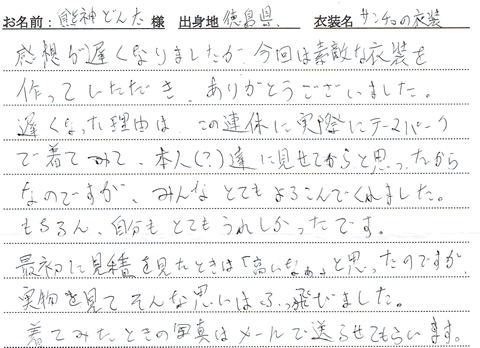 お名前：熊神どんた 様 出身地 徳島県、 衣装名 サンチョの衣装
感想が遅くなりましたが、今回は素敵な衣装を
作っていただき、ありがとうございました。
遅くなった理由は、この連休に実際にテーマパーク
で着てみて、本人(?)達に見せてからと思ったから
なのですが、みんなとてもよろこんでくれました。
もちろん、自分もとてもうれしかったです。
最初に見積を見たときは「高いなぁ」と思ったのですが、
実物を見てそんな思いはふっ飛びました。
着てみたときの写真はメールで送らせてもらいます。